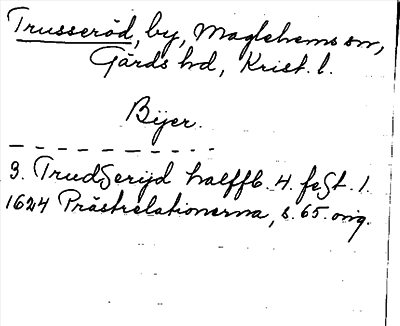 Trusseröd, by, Maglehems sn,
Gärds hd, Krist. l.
Byer.
3. Trudßeryd halffb. 4. feßt. 1.
1624 Prästrelationerna, s. 65. orig.